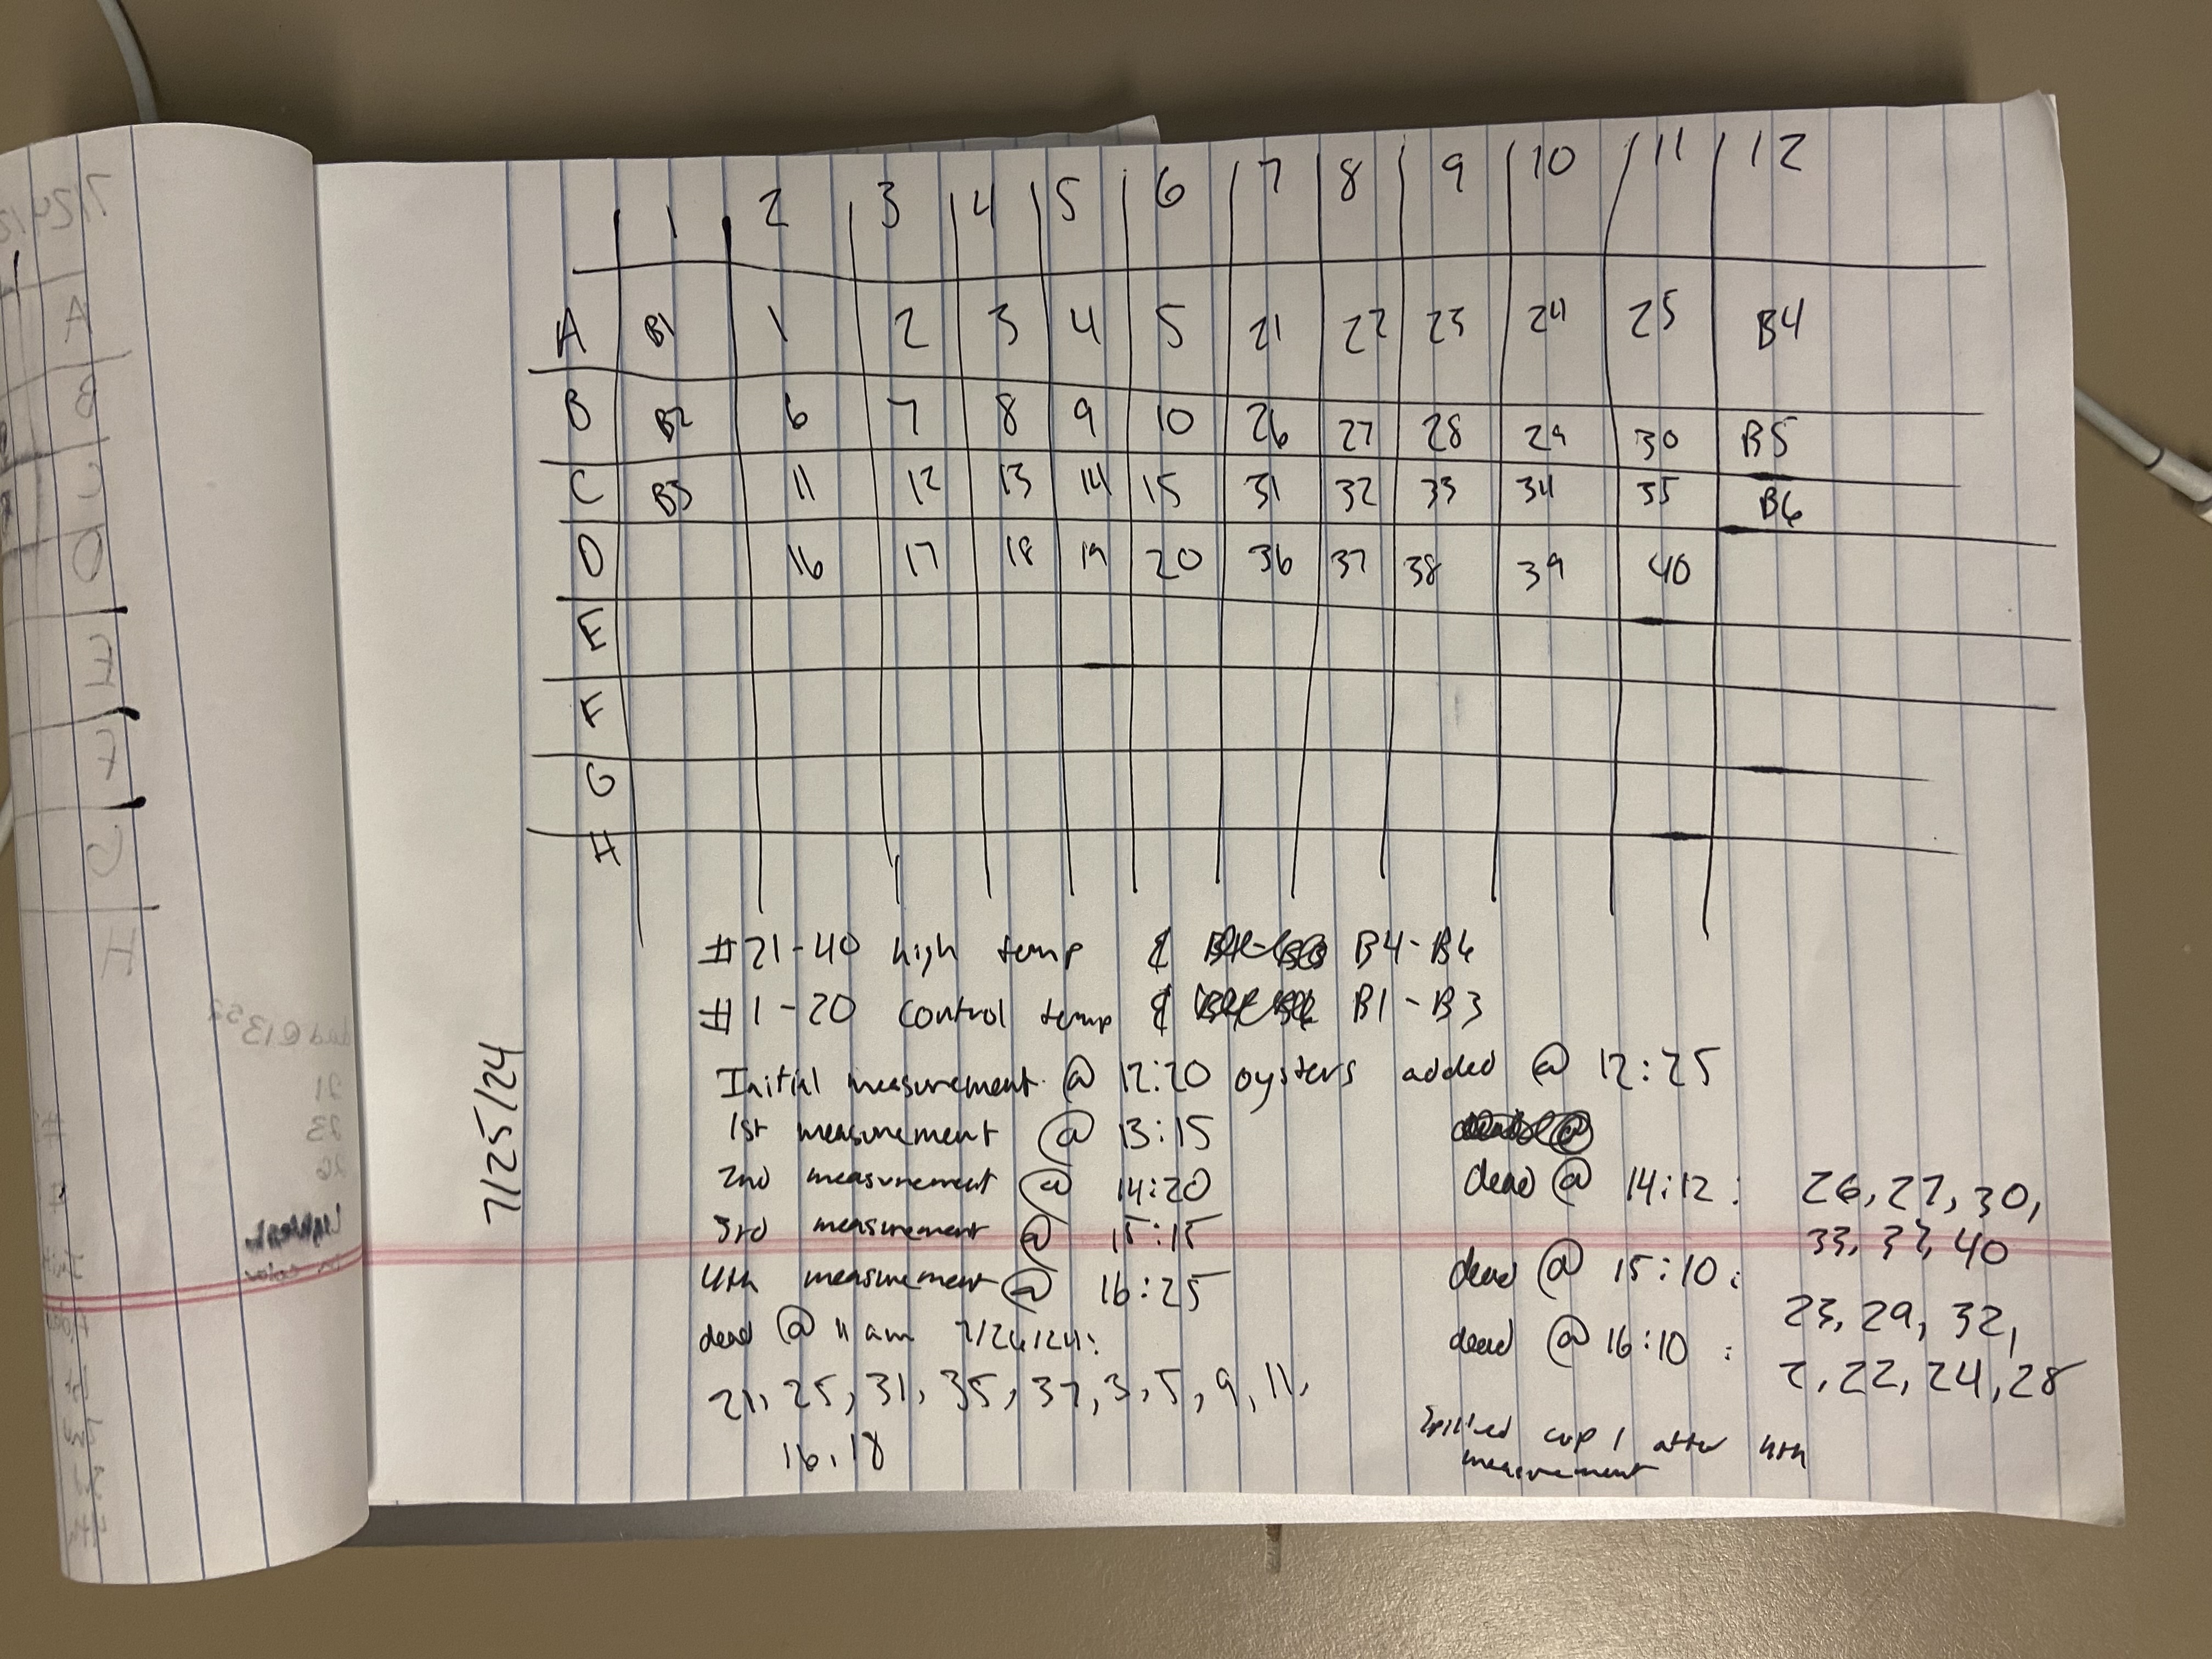 1 2 3 4 5 6 7 8 9 10 11 12
A B1 1 2 3 4 5 21 22 23 24 25 B4
B B2 6 7 8 9 10 26 27 28 29 30 B5
C B3 11 12 13 14 15 31 32 33 34 35 B6
D 16 17 18 19 20 36 37 38 39 40
E
F
G
H
#21-40 high temp & B4-B6
#1-20 control temp & B1-B3
7/25/24
Initial measurement @ 12:20 oysters added @ 12:25
1st measurement @ 13:15
2nd measurement @ 14:20
3rd measurement @ 15:15
4th measurement @ 16:25
dead @ 11 am 7/26/24:
21, 25, 31, 35, 37, 3, 5, 9, 11,
16, 18
dead @ 14:12: 26, 27, 30,
33, 40
dead @ 15:10:
23, 29, 32,
dead @ 16:10:
2, 22, 24, 28
Spilled cup 1 after 4th
measurement